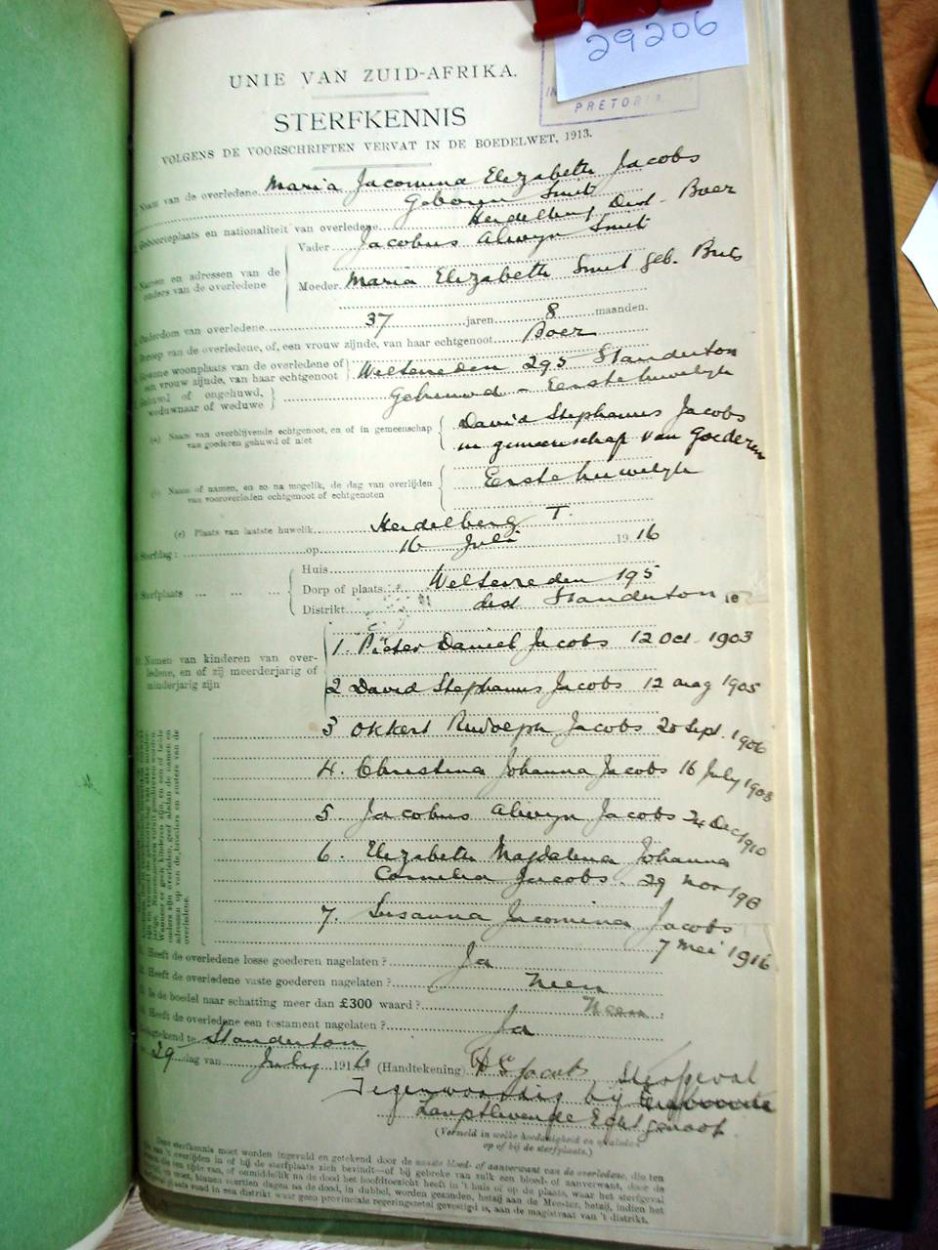 29206
UNIE VAN ZUID-AFRIKA.
PRETORIA
STERFKENNIS
VOLGENS DE VOORSCHRIFTEN VERVAT IN DE BOEDELWET, 1913.
Naam van de overledene Maria Jacomina Elizabeth Jacobs
Geboren Smit
Geboorteplaats en nationaliteit van overledene Heidelberg Dist. Boer
Namen en adressen van de ouders van de overledene
Vader Jacobus Alwyn Smit
Moeder Maria Elizabeth Smit geb.
Ouderdom van overledene 37 jaren 8 maanden.
Beroep van de overledene, of, een vrouw zijnde, van haar echtgenoot Boer
Gewone woonplaats van de overledene of een vrouw zijnde, van haar echtgenoot Weltevreden 295 Standerton
Gehuwd of ongehuwd, weduwnaar of weduwe Gehuwd - Eerste huwelyk
(a) Naam van overblijvende echtgenoot, en of in gemeenschap van goederen gehuwd of niet David Stephanus Jacobs
in gemeenschap van Goederen
Naam of namen, en zo na mogelik, de dag van overlijden van vooroverleden echtgenoot of echtgenoten Eerste huwelyk
(c) Plaats van laatste huwelik Heidelberg T.
Sterfdag: op 16 Juli 1916
Sterfplaats
Huis
Dorp of plaats Weltevreden 195
Distrikt dist Standerton
Namen van kinderen van overledene, en of zij meerderjarig of minderjarig zijn
1. Pieter Daniel Jacobs 12 Oct. 1903
2 David Stephanus Jacobs 12 Aug 1905
3 Okkert Rudolph Jacobs 20 Sept. 1906
4. Christina Johanna Jacobs 16 July 1908
5. Jacobus Alwyn Jacobs 24 Dec 1910
6. Elizabeth Magdalena Johanna
Cornelia Jacobs. 29 Nov
7. Susanna Jacomina Jacobs
7 Mei 1916
Heeft de overledene losse goederen nagelaten? Ja
Heeft de overledene vaste goederen nagelaten? Neen
Is de boedel naar schatting meer dan £300 waard? Neen
Heeft de overledene een testament nagelaten? Ja
Getekend te Standerton
29 dag van July 1916 (Handtekening) D S Jacobs Sterfgeval
Tegenwoordig bij
Langstlevende Echtgenoot
(Vermeld in welke hoedanigheid en of
op of bij de sterfplaats.)
Deze sterfkennis moet worden ingevuld en getekend door de naaste bloed- of aanverwant van de overledene, die ten
tijde van 't overlijden in of bij de sterfplaats zich bevindt—of bij gebreke van zulk een bloed- of aanverwant, door de